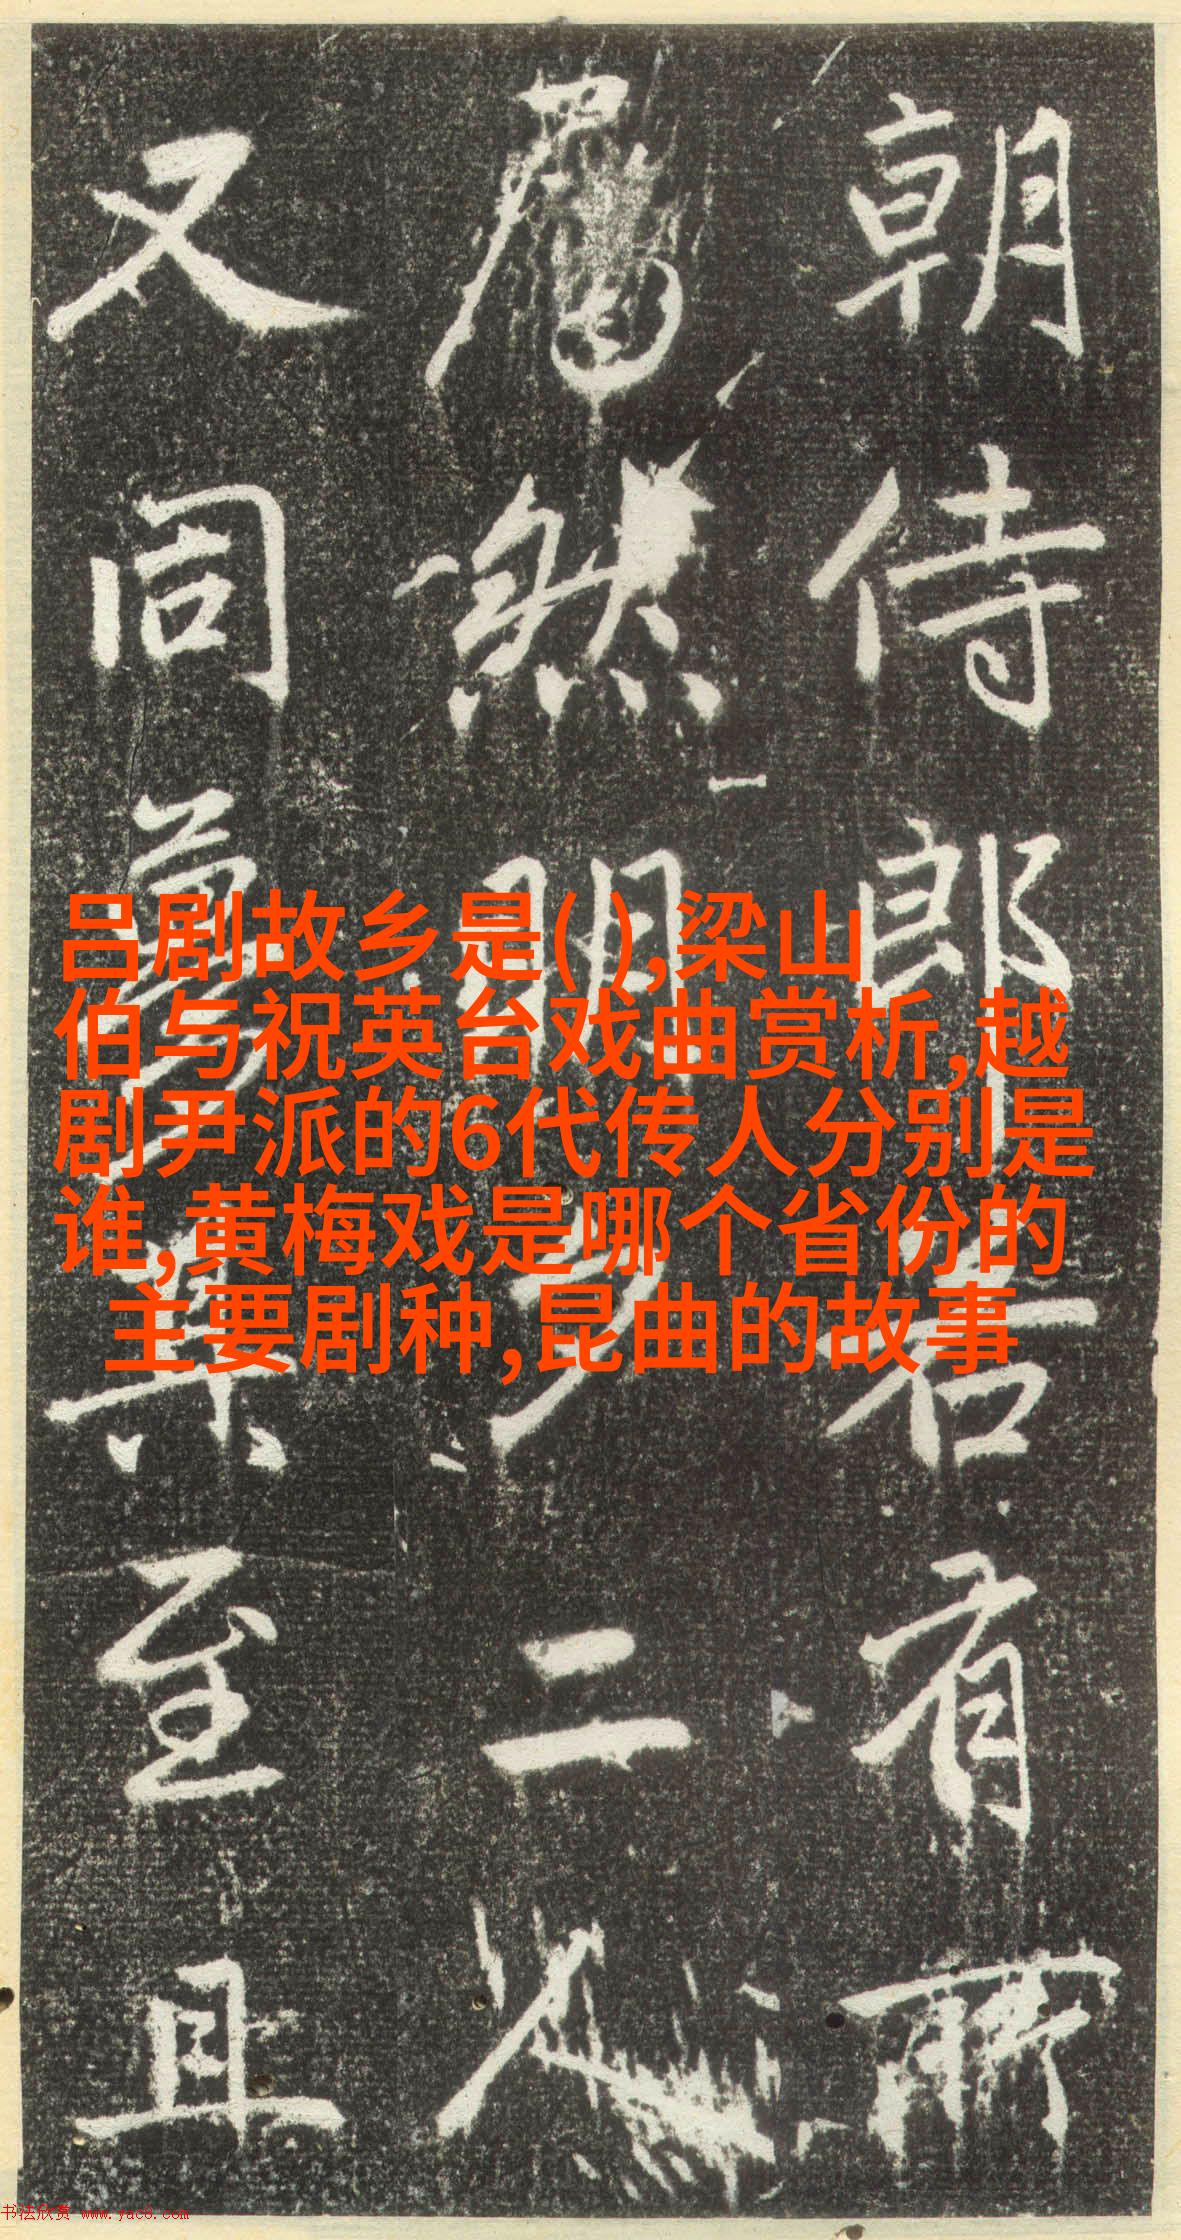 朝侍郎君有所
然明二人
又同至且
吕剧故乡是( ),梁山
伯与祝英台戏曲赏析,越
剧尹派的6代传人分别是
谁,黄梅戏是哪个省份的
主要剧种,昆曲的故事
书法欣赏 www.yac8.com